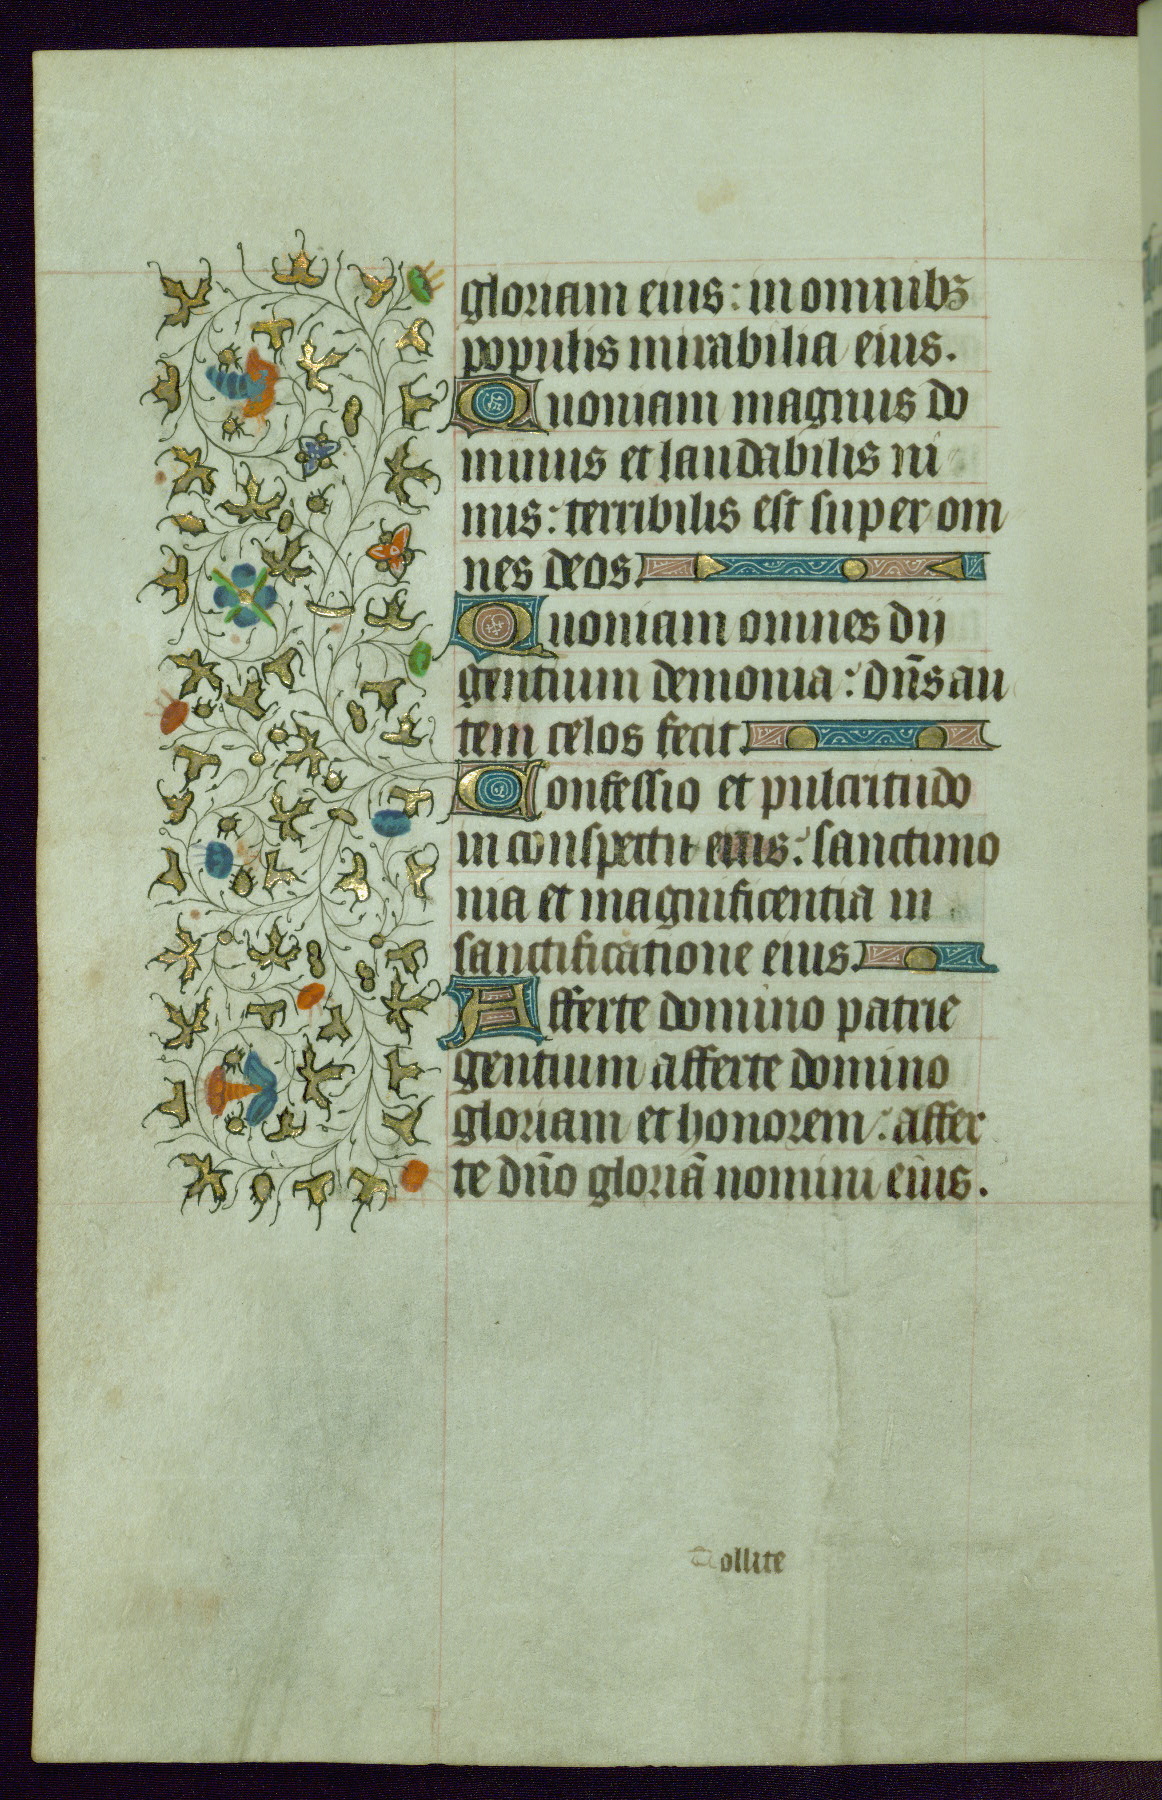 gloriam eius: in omnibꝫ
populis mirabilia eius.
Quoniam magnus do
minus et laudabilis ni
mis: terribilis est super om
nes deos.
Quoniam omnes dij
gentium demonia: dn̄s au
tem celos fecit.
Confessio et pulcritudo
in conspectu eius: sanctimo
nia et magnificentia in
sanctificatione eius.
Afferte domino patrie
gentium afferte domino
gloriam et honorem: affer
te dn̄o gloriā nomini eius.
Tollite